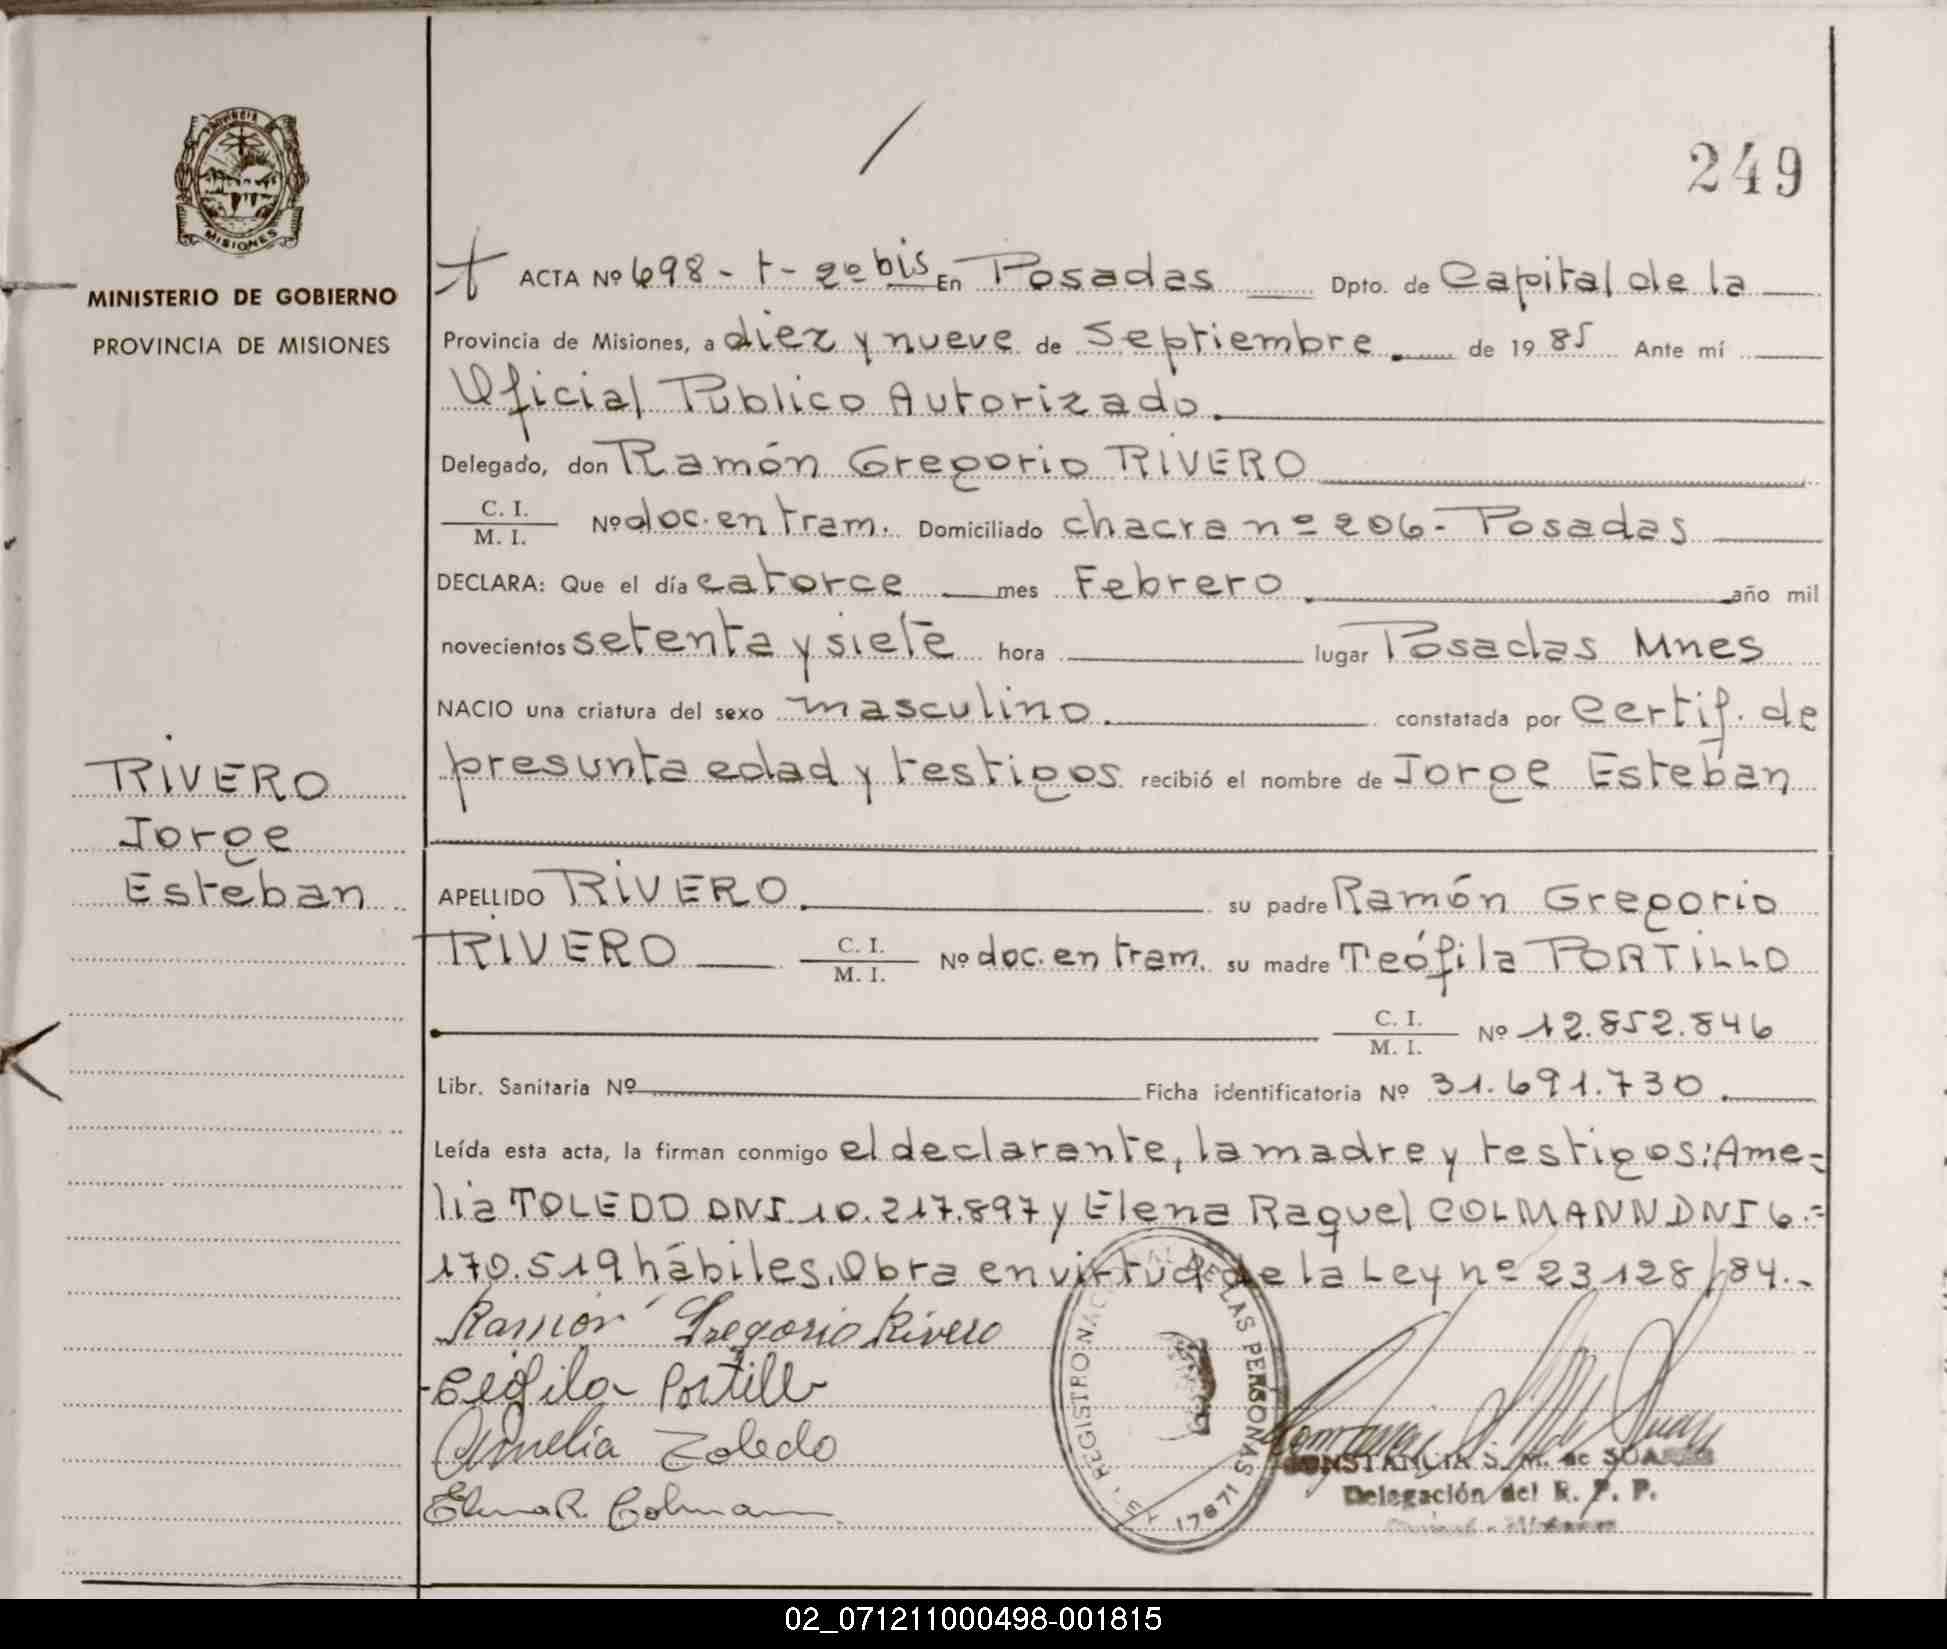 249
PROVINCIA DE
MISIONES
MINISTERIO DE GOBIERNO
PROVINCIA DE MISIONES
RIVERO
Jorge
Esteban
ACTA Nº 698 - t - 2º bis En Posadas Dpto. de Capital de la
Provincia de Misiones, a diez y nueve de Septiembre. de 1985 Ante mí
Oficial Público Autorizado.
Delegado, don Ramón Gregorio RIVERO
C. I.
M. I. Nº doc. en tram. Domiciliado chacra nº 206 - Posadas
DECLARA: Que el día catorce mes Febrero. año mil
novecientos setenta y siete hora lugar Posadas Mnes
NACIO una criatura del sexo masculino. constatada por certif. de
presunta edad y testigos recibió el nombre de Jorge Esteban
APELLIDO RIVERO. su padre Ramón Gregorio
RIVERO C. I.
M. I. Nº doc. en tram. su madre Teófila PORTILLO
C. I.
M. I. Nº 12.852.846
Libr. Sanitaria Nº Ficha identificatoria Nº 31.691.730.
Leída esta acta, la firman conmigo el declarante, la madre y testigos: Ame=
lia TOLEDO DNI 10.217.897 y Elena Raquel COLMANN DNI 6.=
170.519 hábiles. Obra en virtud de la Ley nº 23128/84.-
Ramón Gregorio Rivero
Teófila Portillo
Amelia Toledo
Elena R. Colmann
REGISTRO NACIONAL DE LAS PERSONAS
17671
CONSTANCIA S. M. de SUAREZ
Delegación del R. P. P.
02_071211000498-001815